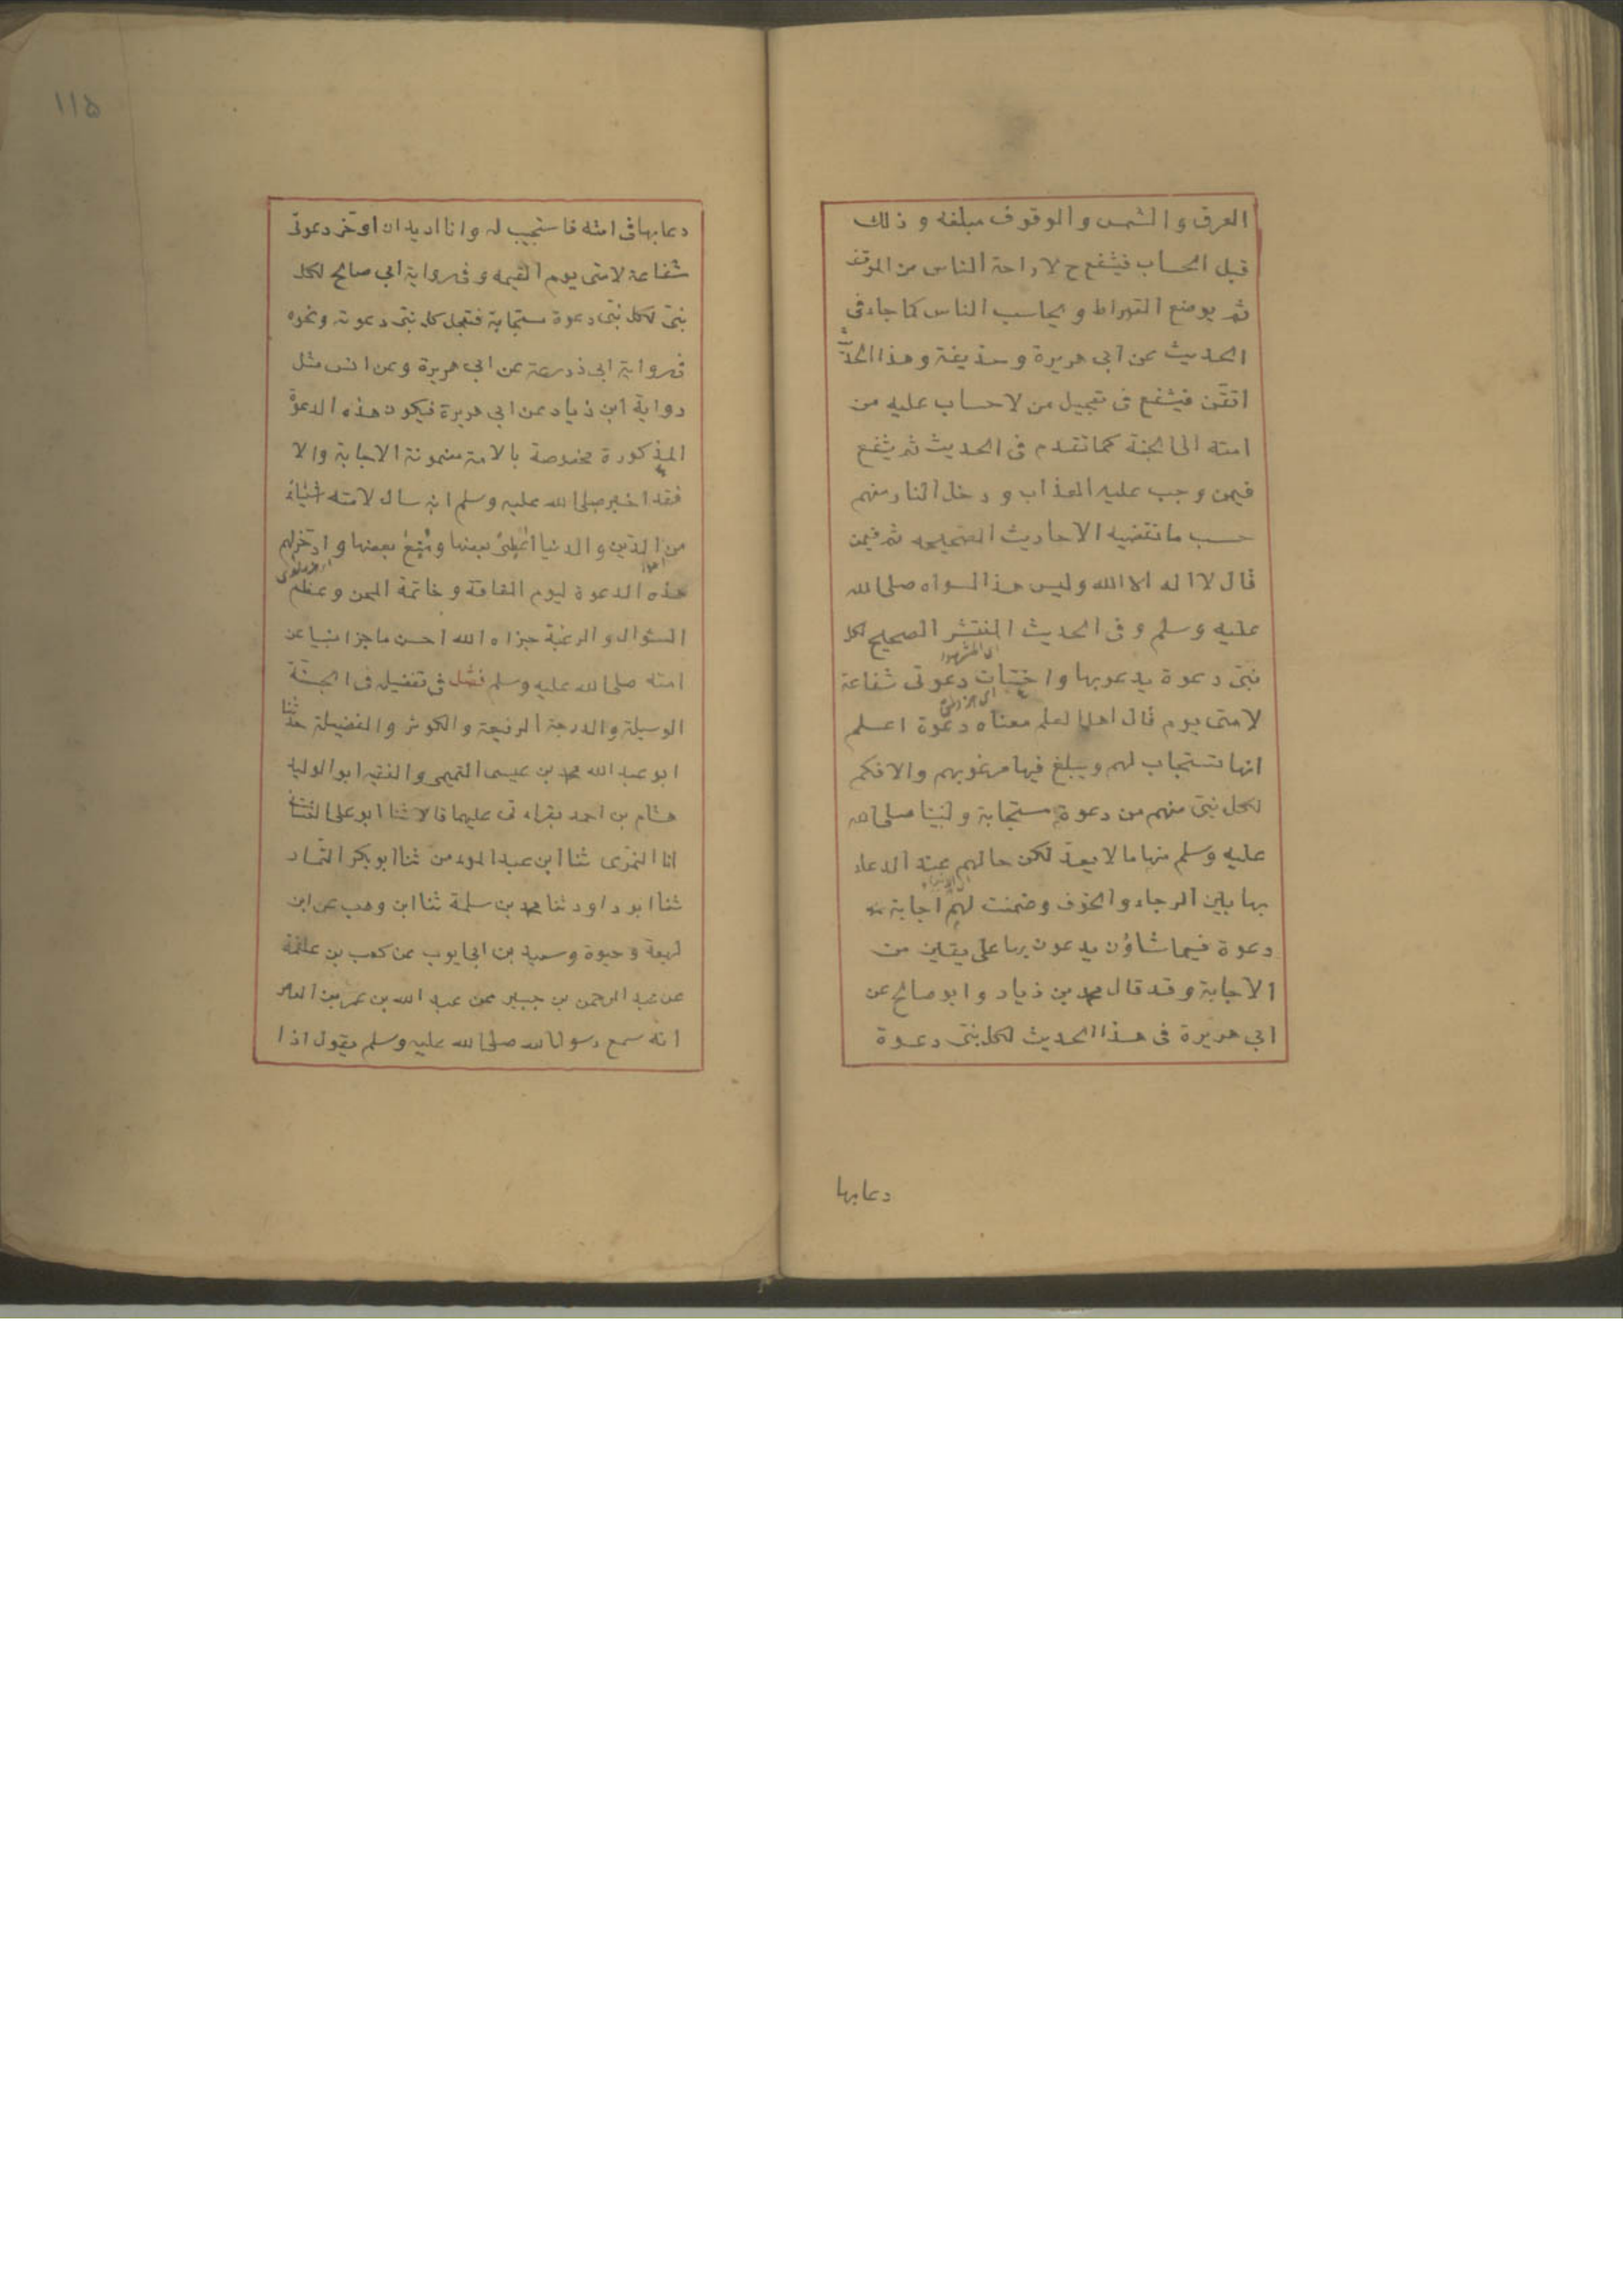 العرق و الشمس و الوقوف مبلغه و ذلك
قبل الحساب فيشفع ح لاراحة الناس من الموقف
ثم يوضع الصراط و يحاسب الناس كما جاء فى
الحديث عن ابى هريرة و حذيفة و هذا الحديث
اتقن فيشفع فى تعجيل من لا حساب عليه من
امته الى الجنة كما تقدم فى الحديث ثم يشفع
فيمن وجب عليه العذاب و دخل النار منهم
حسب ما تقتضيه الاحاديث الصحيحه ثم فيمن
قال لا اله الا الله و ليس هذا لسواه صلى الله
عليه و سلم و فى الحديث المنتشر الصحيح لكل
اى المشهور
نبى دعوة يدعو بها و اختبات دعوتى شفاعة
لامتى يوم قال اهل العلم معناه دعوة اعلم
انها تستجاب لهم و يبلغ فيها مرغوبهم و الا فكم
لكل نبى منهم من دعوة مستجابة و لنبينا صلى الله
عليه و سلم منها ما لا يعد لكن حالهم عند الدعاء
بها بين الرجاء و الخوف و ضمنت لهم اجابة
دعوة فيما شاؤن يدعون بها على يقين من
الاجابة و قد قال محمد بن زياد و ابو صالح عن
ابى هريرة فى هذا الحديث لكل نبى دعوة
دعا بها
١١٥
دعا بها فى امته فاستجيب له و انا اريد ان اوخر دعوتى
شفاعة لامتى يوم القيمه و فى رواية ابى صالح لكل
نبى لكل نبى دعوة مستجابة فتعجل كل نبى دعوته و نحوه
فى رواية ابى زرعة عن ابى هريرة و عن انس مثل
رواية ابن زياد عن ابى هريرة فيكون هذه الدعوة
المذكورة مخصوصة بالامة مضمونة الاجابة و الا
فقد اخبر صلى الله عليه و سلم انه سال لامته اشياء
من الدين و الدنيا اعطى بعضها و منع بعضها و ادخر لهم
هذه الدعوة ليوم الفاقة و خاتمة المحن و عظيم
السؤال و الرغبة جزاه الله احسن ما جزا نبيا عن
امته صلى الله عليه و سلم فصل فى تفضيله فى الجنة
الوسيلة و الدرجة الرفيعة و الكوثر و الفضيلة حدثنا
ابو عبد الله محمد بن عيسى التميمى و الفقيه ابو الوليد
هشام بن احمد بقراءتى عليهما قالا ثنا ابو على الغسانى
انا النمرى ثنا ابن عبد المؤمن ثنا ابو بكر التمار
ثنا ابو داود ثنا محمد بن سلمة ثنا ابن وهب عن ابن
لهيعة و حيوة و سعيد بن ابى ايوب عن كعب بن علقمة
عن عبد الرحمن بن جبير عن عبد الله بن عمر بن العاص
انه سمع رسول الله صلى الله عليه و سلم يقول اذا